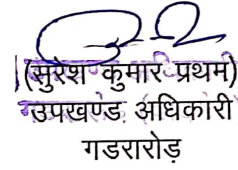 (सुरेश कुमार प्रथम)
उपखण्ड अधिकारी
गडरारोड़